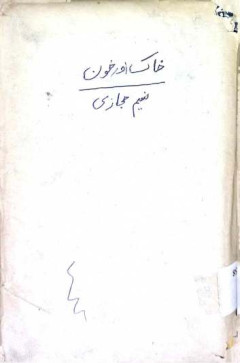 خاک اور خون
نسیم حجازی